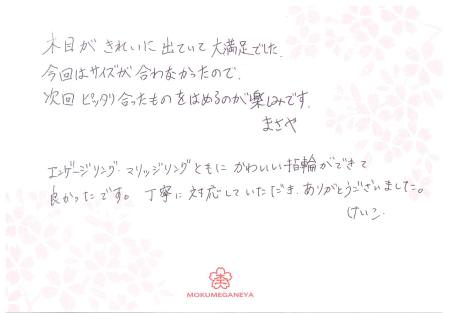 木目がきれいに出ていて大満足でした。
今回はサイズが合わなかったので、
次回ピッタリ合ったものをはめるのが楽しみです。
まさや
エンゲージリング・マリッジリングともにかわいい指輪ができて
良かったです。丁寧に対応していただき、ありがとうございました。
けいこ
MOKUMEGANEYA